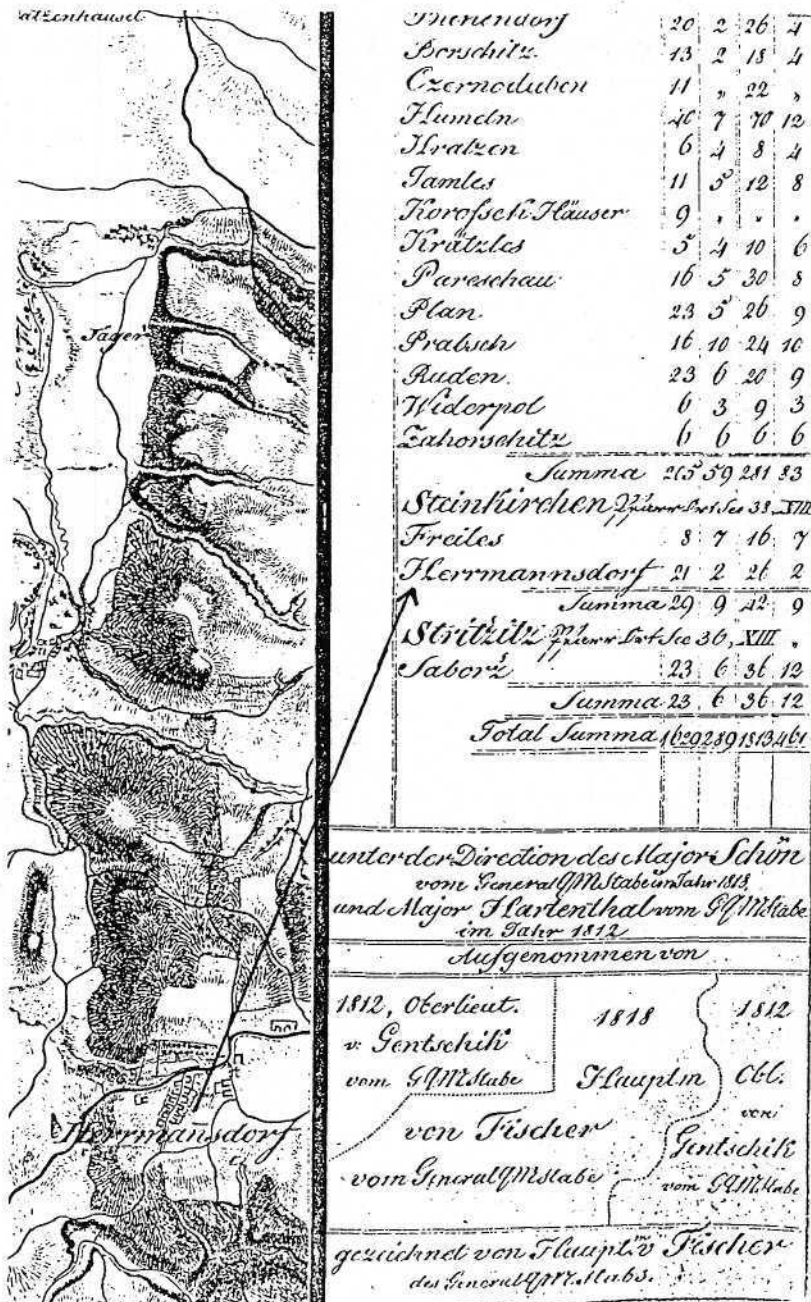 atzenhäusel
Jäger
Herrmannsdorf
Thenendorf 20 2 26 4
Borschitz 13 2 18 4
Czernoduben 11 „ 22 „
Humeln 40 7 70 12
Kratzen 6 4 8 4
Jamles 11 5 12 8
Korofsek Häuser 9 „ „ „
Krätzles 5 4 10 6
Pareschau 16 5 30 8
Plan 23 5 26 9
Prabsch 16 10 24 10
Ruden 23 6 20 9
Widerpol 6 3 9 3
Zahorschitz 6 6 6 6
Summa 265 59 281 83
Steinkirchen Pfarr Ort Sec 38, XIII
Freiles 8 7 16 7
Herrmannsdorf 21 2 26 2
Summa 29 9 42 9
Stritzitz Pfarr Ort Sec 36, XIII „
Saborž 23 6 36 12
Summa 23 6 36 12
Total Summa 1629 289 1813 461
unter der Direction des Major Schön
vom General QMStabe im Jahr 1818,
und Major Hartenthal vom GQMStabe
im Jahr 1812
Aufgenommen von
1812, Oberlieut.
v. Gentschik
vom GQMStabe
1818
Hauptm
von Fischer
vom General QMStabe
1812
Obl.
von
Gentschik
vom GQMStabe
gezeichnet von Hauptm v Fischer
des General QM Stabs.